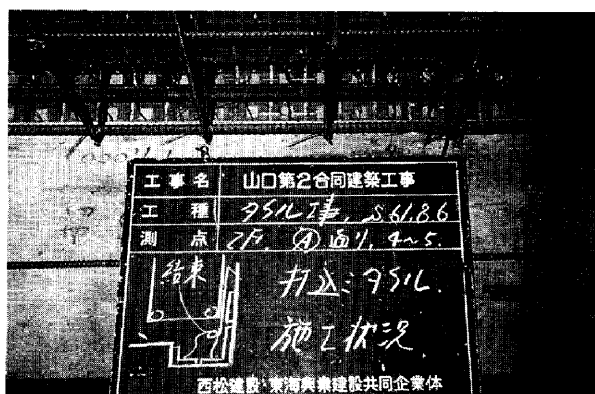 工事名 山口第2合同建築工事
工種 タイル工事. S61.8.6
測点 2F. Ⓐ通り. 4~5.
結束
打込ミタイル.
施工状況
西松建設・東海興業建設共同企業体